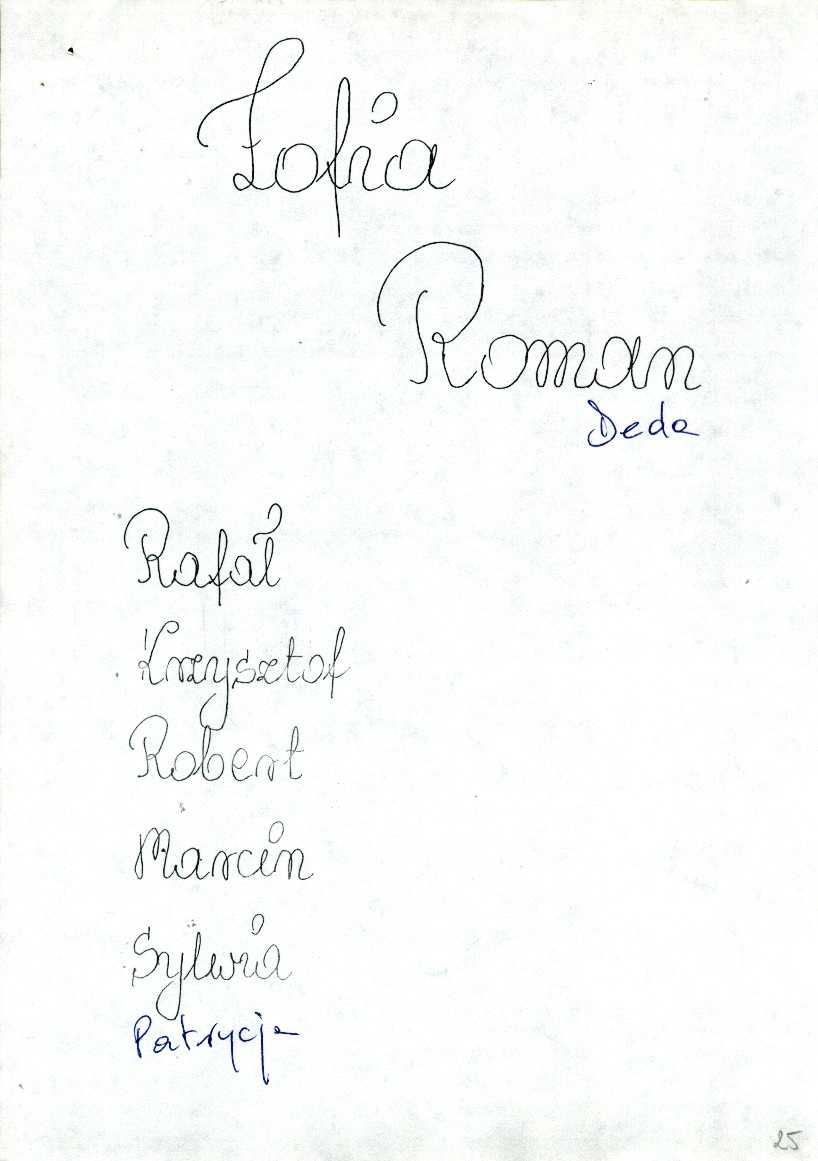 Zofia
Roman
Deda
Rafał
Krzysztof
Robert
Marcin
Sylwia
Patrycja
25